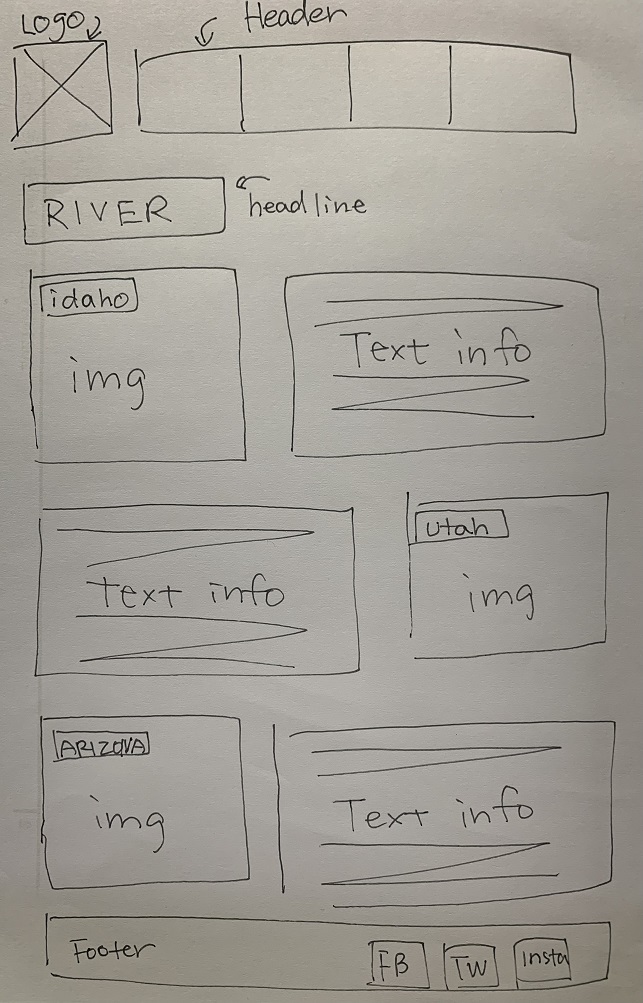 Logo
Header
RIVER
headline
idaho
img
Text info
Text info
Utah
img
ARIZONA
img
Text info
Footer
FB
TW
Insta